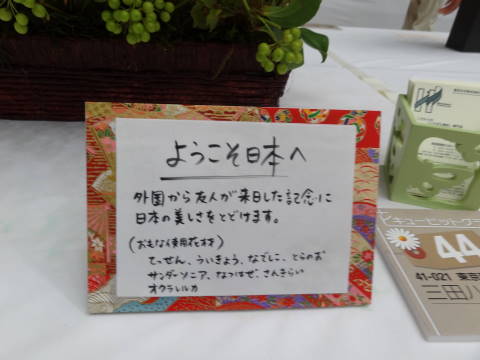 ようこそ日本へ
外国から友人が来日した記念に
日本の美しさをとどけます。
(おもな使用花材)
てっせん、ういきょう、なでしこ、とらのお
サンダーソニア、なつはぜ、さんきらい
オクラレルカ
44
41-021 東京
三田ハ